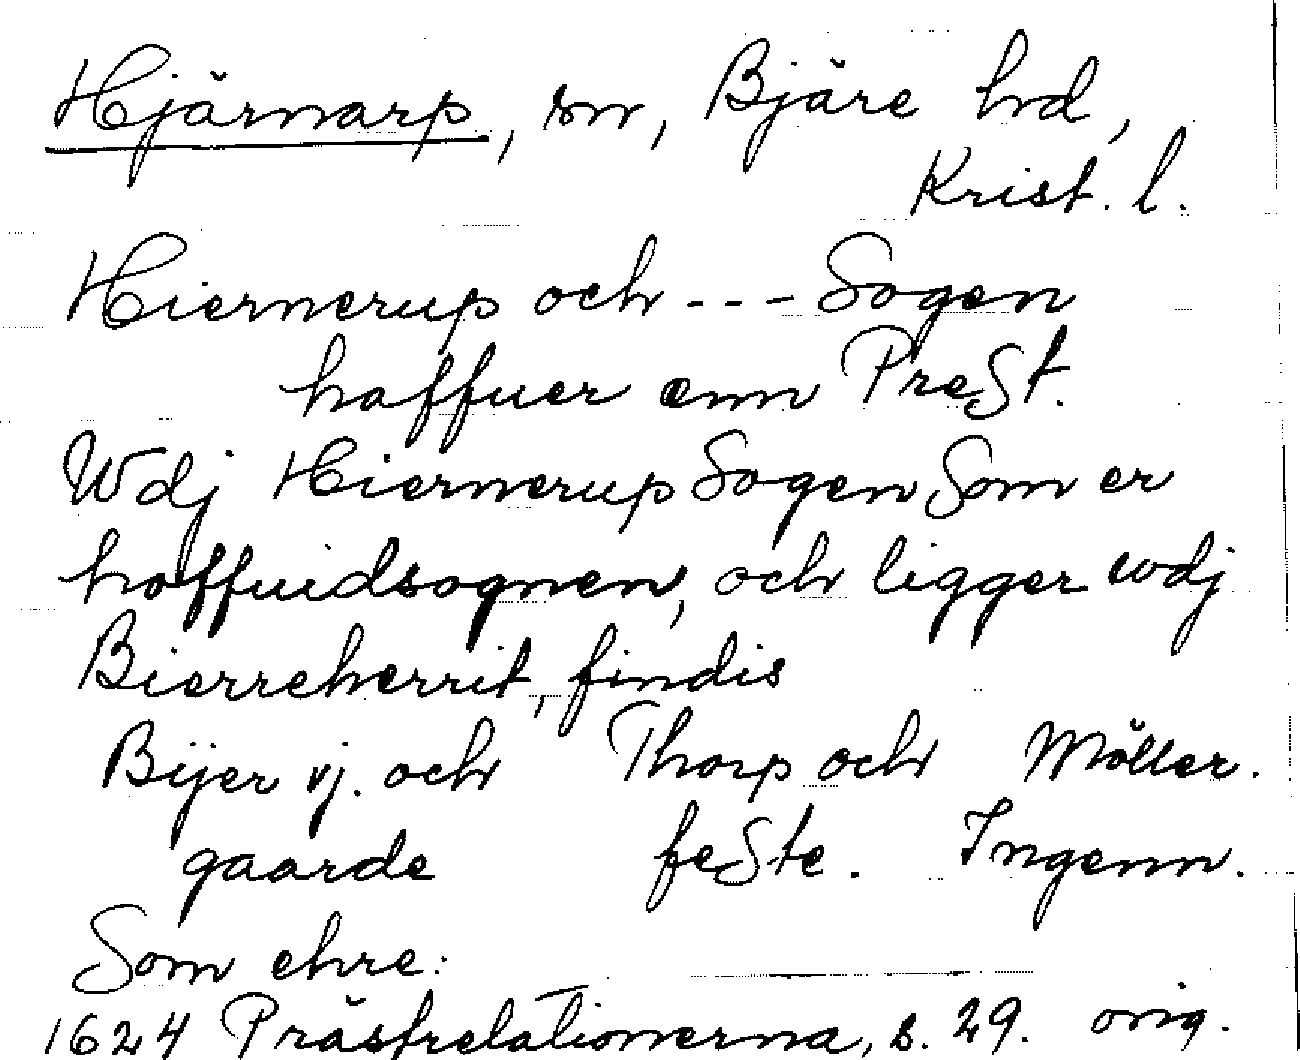 Hjärnarp, sn, Bjäre hrd,
Krist. l.
Hiernerup och --- Sogen
haffuer enn PreSt.
Wdj Hiernerup Sogen Som er
haffuidsognen, och ligger wdj
Bierreherrit, findis
Bijer vj. och Thorp och Möller.
gaarde feSte. Ingenn.
Som ehre:
1624 Prästrelationerna, s. 29. orig.